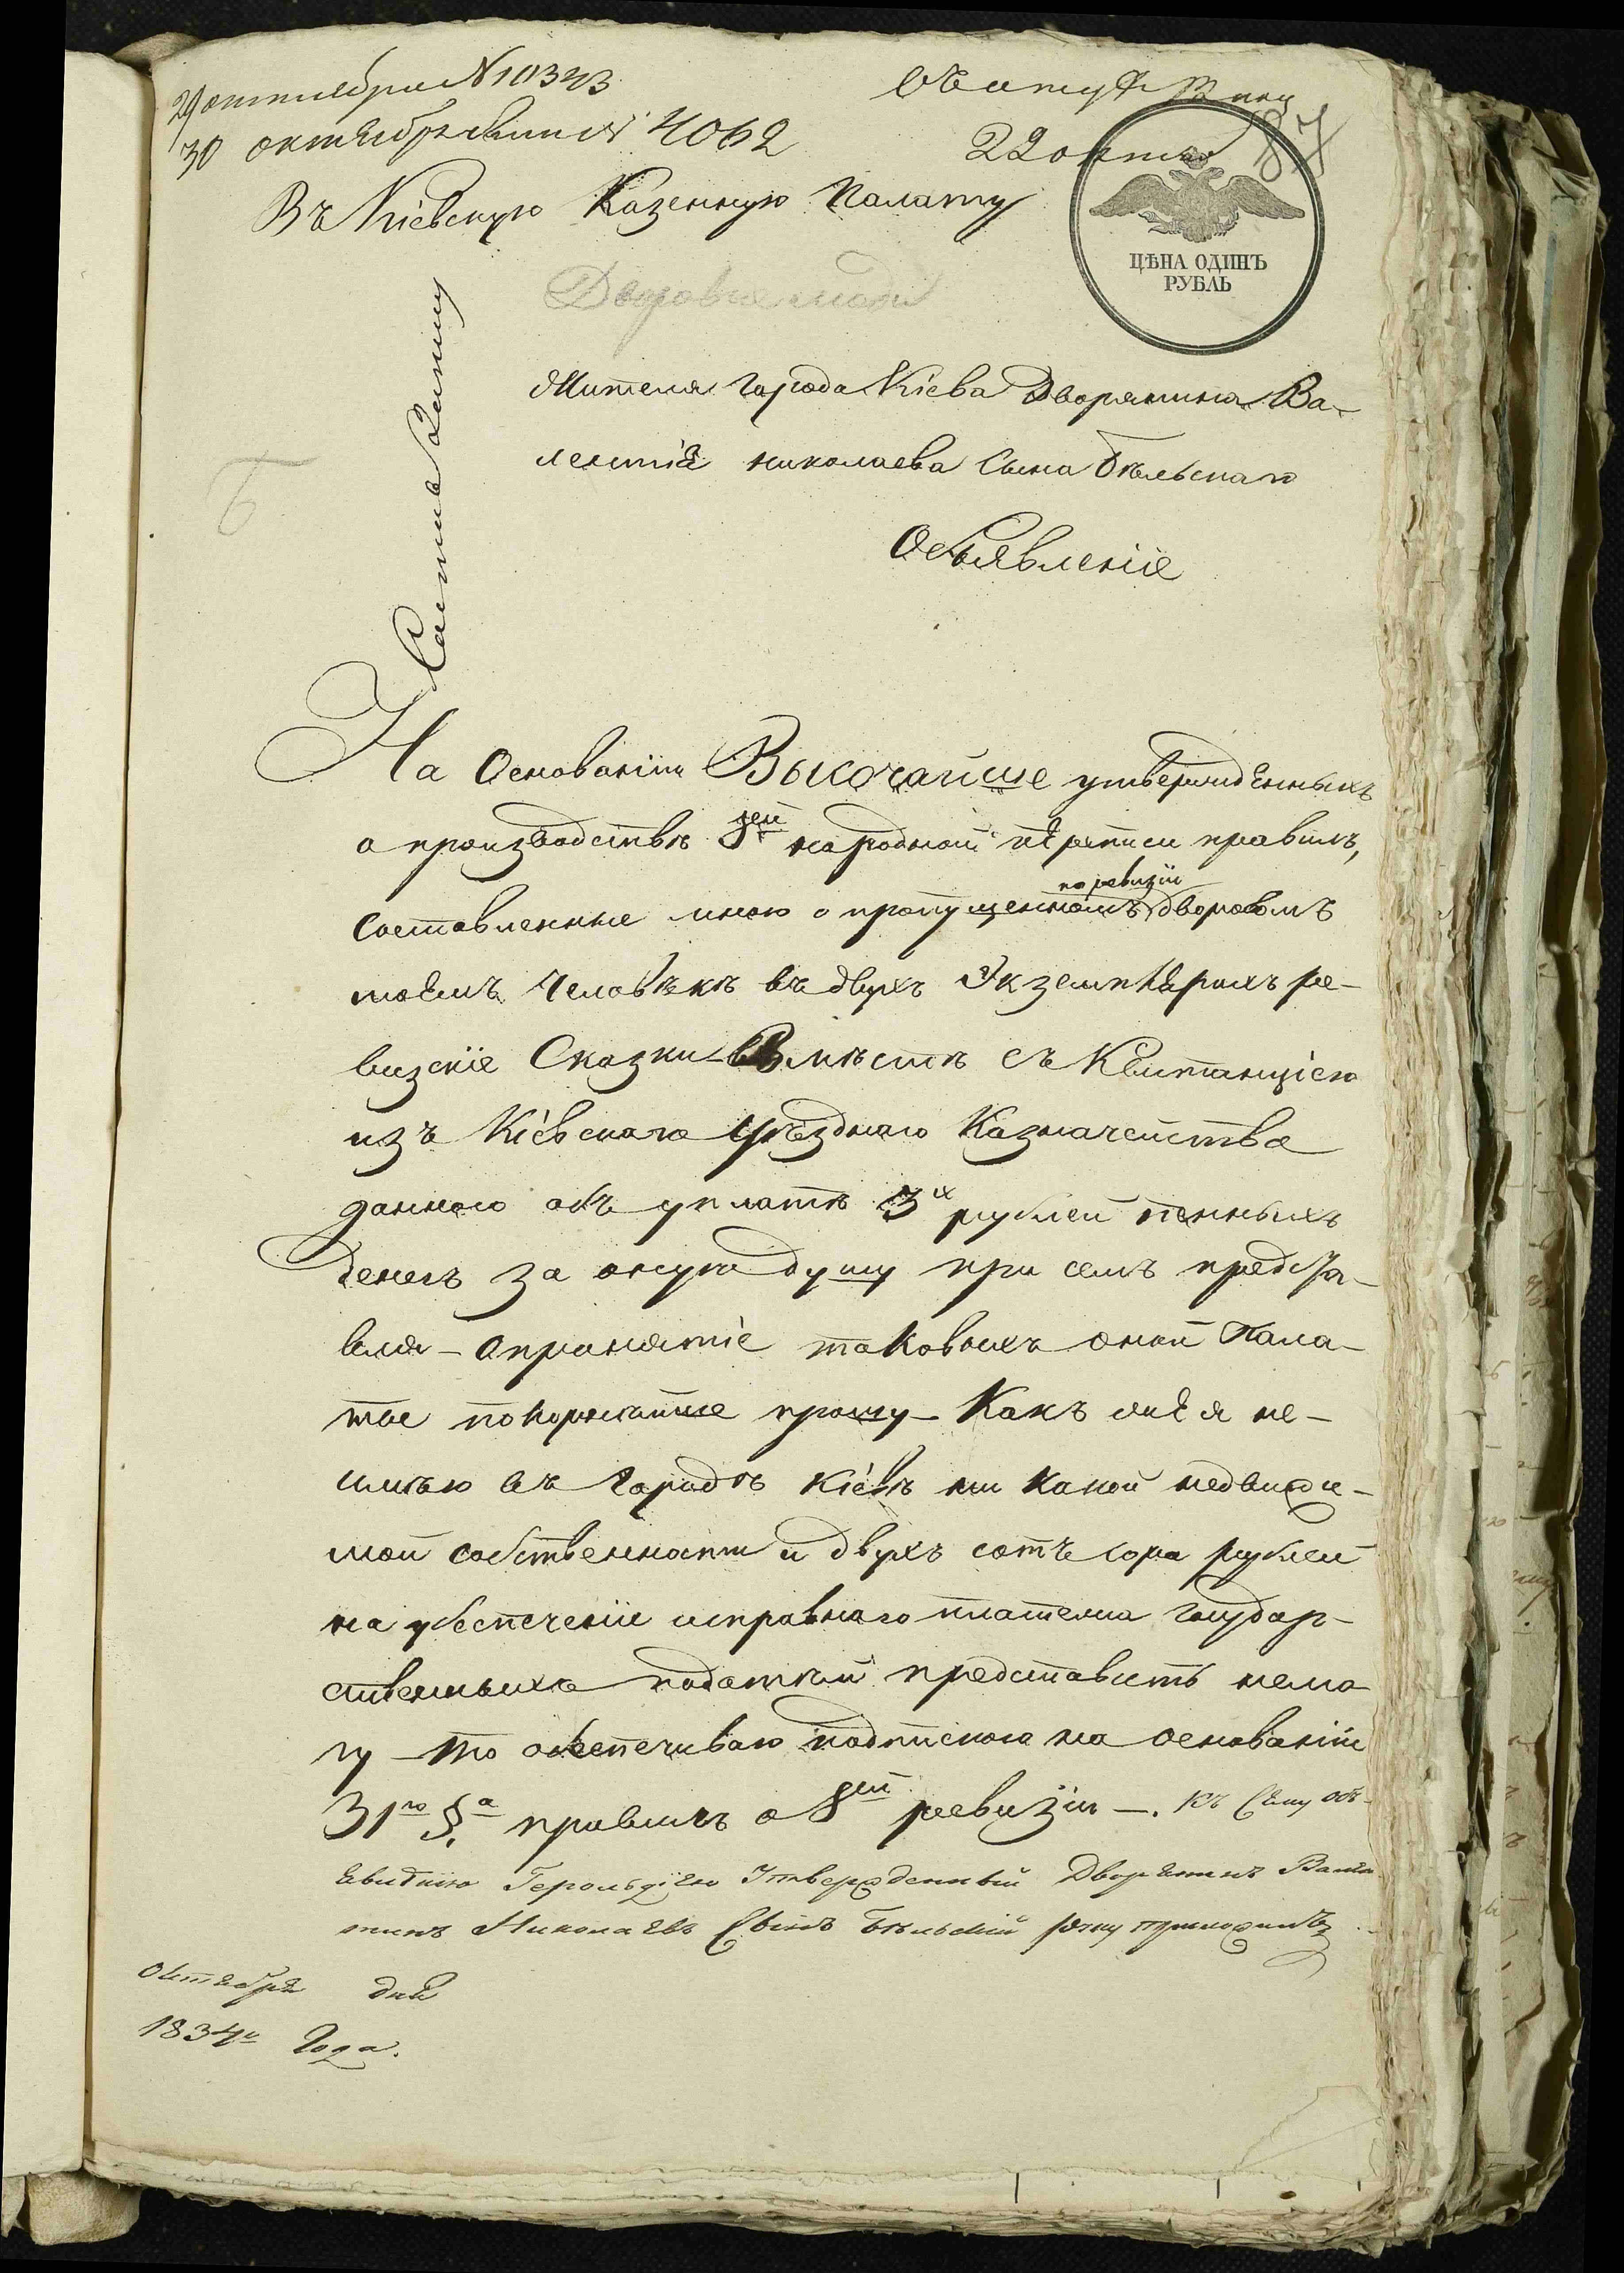 29 октября № 10343
30 октября № 4062
22 окт
87
Въ Кіевскую Казенную Палату
ЦѢНА ОДИНЪ
РУБЛЬ
Дворовые люди
Жителя города Кіева Дворянина Ва-
лентія николаева Сына Бѣльскаго
Объявленіе
Б
На Основаніи Высочайше утвержденныхъ
о производствѣ 8ей народной переписи правилъ,
составленные мною о пропущенномъ по ревизіи дворовомъ
моемъ человѣкѣ въ двухъ Экземплярахъ ре-
визскіе Сказки вмѣстѣ съ Квитанціею
изъ Кіевскаго уѣзднаго Казначейства
данною объ уплатѣ 3х рублей пенныхъ
денегъ за оную душу при семъ предста-
вляя - о принятіе таковыхъ оной Пала-
тое покорнейше прошу - Какъ же я не-
имѣю въ городѣ Кіевѣ ни какой недвижи-
мой собственности и двухъ сотъ сора рублей
на убеспеченіи исправного платежа государ-
ственныхъ податей представить немо
гу - то обеспечиваю подпискою на основаніи
31го §а правилъ о 8ей ревизіи -. Къ Сему объ-
евленію Герольдіею Утвержденный Дворенинъ Вален
тинъ Николаевъ Сынъ Бѣльскій руку приложилъ
Октября дня
1834го Года.